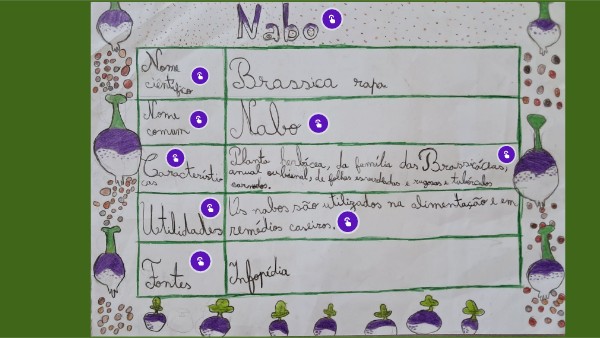 Nabo
Nome
científico
Brassica rapa
Nome
comum
Nabo
Característi
cas
Planta herbácea, da família das Brassicáceas,
anual ou bienal, de folhas esverdeadas e rugosas e tubérculos
carnudos.
Utilidades
Os nabos são utilizados na alimentação e em
remédios caseiros.
Fontes
Infopédia